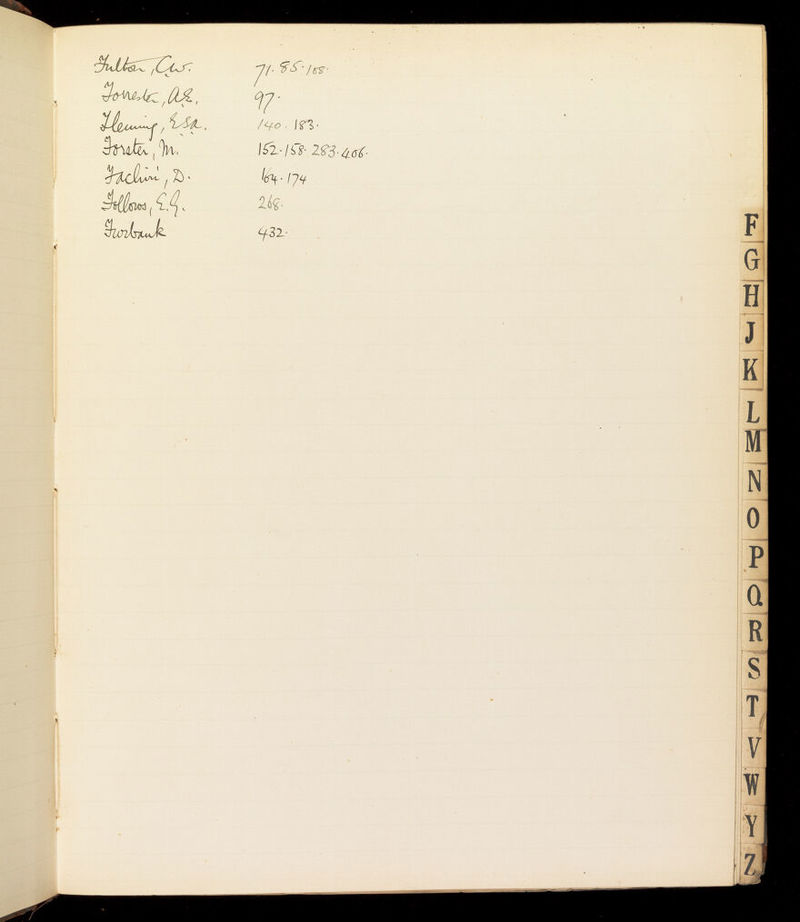 Fulton, C.W. 71. 85. 108.
Forrester, A.E. 97.
Fleming, E.S.A. 140. 183.
Forster, M. 152. 158. 283. 406.
Fachiri, D. 164. 174
Fellows, E.G. 268.
Furbank 432.
F
G
H
J
K
L
M
N
O
P
Q
R
S
T
V
W
Y
Z